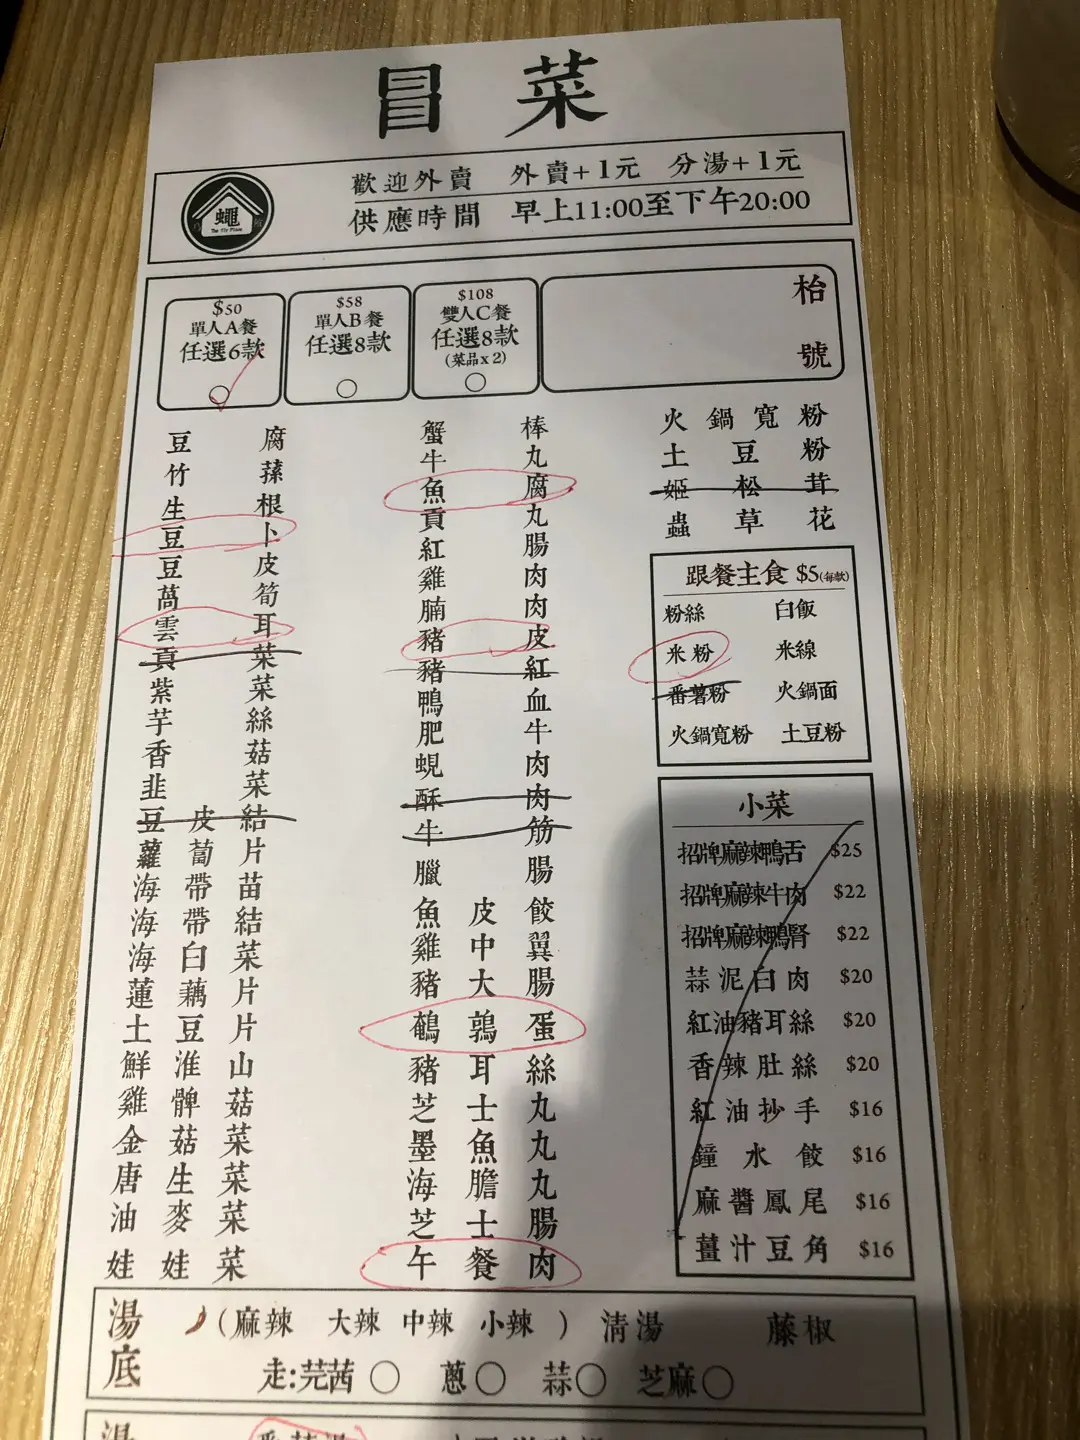 冒菜
歡迎外賣 外賣+1元 分湯+1元
供應時間 早上11:00至下午20:00
蠅
The Fly Place
$50
單人A餐
任選6款
$58
單人B餐
任選8款
$108
雙人C餐
任選8款
(菜品x2)
枱號
豆腐
竹蓀
生根
豆卜
豆皮
萵筍
雲耳
貢菜
紫菜
芋絲
香菇
韭菜
豆皮結
蘿蔔片
海帶苗
海帶結
海白菜
蓮藕片
土豆片
鮮淮山
雞髀菇
金菇菜
唐生菜
油麥菜
娃娃菜
蟹棒
牛丸
魚腐
貢丸
紅腸
雞肉
腩肉
豬皮
豬紅
鴨血
肥牛
蜆肉
酥肉
牛筋
臘腸
魚皮餃
雞中翼
豬大腸
鵪鶉蛋
豬耳絲
芝士丸
墨魚丸
海膽丸
芝士腸
午餐肉
火鍋寬粉
土豆粉
姬松茸
蟲草花
跟餐主食 $5(每款)
粉絲 白飯
米粉 米線
番薯粉 火鍋面
火鍋寬粉 土豆粉
小菜
招牌麻辣鴨舌 $25
招牌麻辣牛肉 $22
招牌麻辣鴨腎 $22
蒜泥白肉 $20
紅油豬耳絲 $20
香辣肚絲 $20
紅油抄手 $16
鐘水餃 $16
麻醬鳳尾 $16
薑汁豆角 $16
湯底
(麻辣 大辣 中辣 小辣) 清湯 藤椒
走:芫茜 蔥 蒜 芝麻